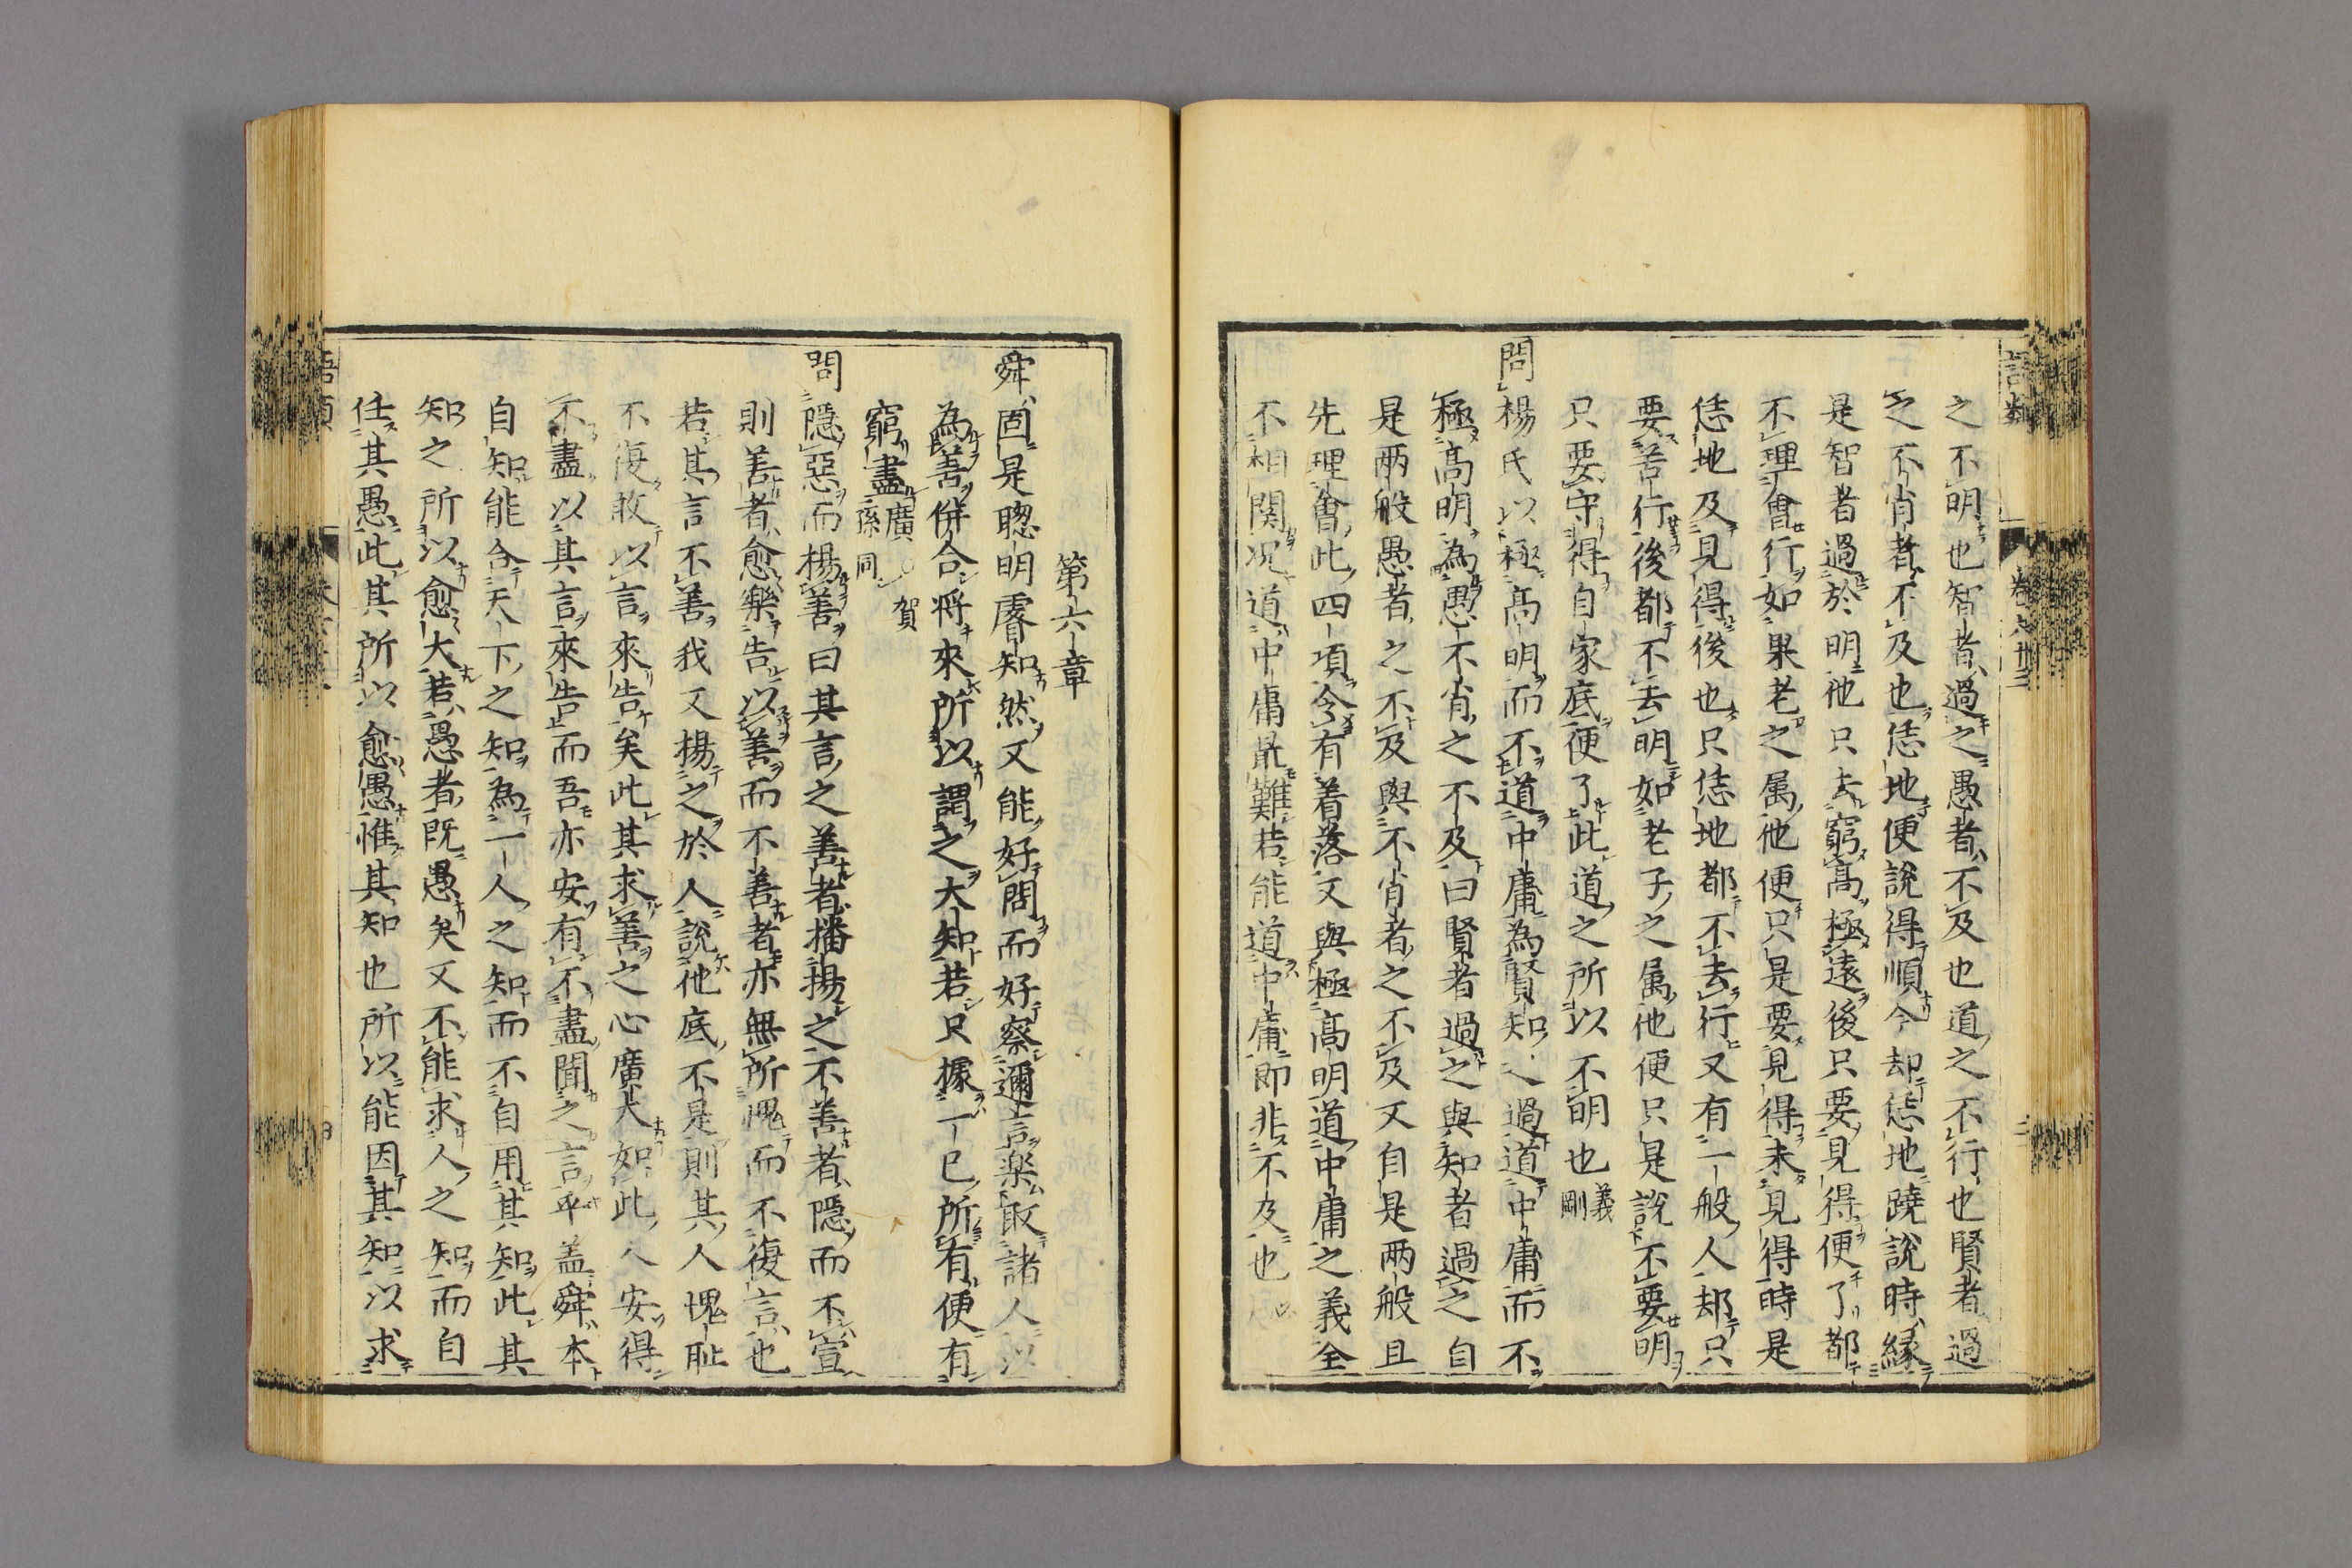 之不明也智者過之愚者不及也道之不行也賢者過
之不肖者不及也恁地便說得順今却恁地蹺說時緣
是智者過於明他只去窮高極遠後只要見得便了都
不理會行如果老之屬他便只是要見得未見得時是
恁地及見得後也只恁地都不去行又有一般人却只
要苦行後都不去明如老子之属他便只是說不要明
只要守得自家底便了此道之所以不明也義
剛
問楊氏以極高明而不道中庸為賢知之過道中庸而不
極高明為愚不肖之不及曰賢者過之與知者過之自
是兩般愚者之不及與不肖者之不及又自是兩般且
先理會此四項令有着落又與極高明道中庸之義全
不相関况道中庸最難若能道中庸即非不及也
第六章
舜固是聰明睿知然又能好問而好察邇言楽取諸人以
為善併合將來所以謂之大知若只據一己所有便有
窮盡廣賀
孫同
問隱惡而揚善曰其言之善者播揚之不善者隱而不宣
則善者愈樂告以善而不善者亦無所愧而不復言也
若其言不善我又揚之於人說他底不是則其人愧耻
不復敢以言來告矣此其求善之心廣大如此人安得
不盡以其言來告而吾亦安有不盡聞之言乎盖舜本
自知能合天下之知為一人之知而不自用其知此其
知之所以愈大若愚者既愚矣又不能求人之知而自
任其愚此其所以愈愚惟其知也所以能因其知以求